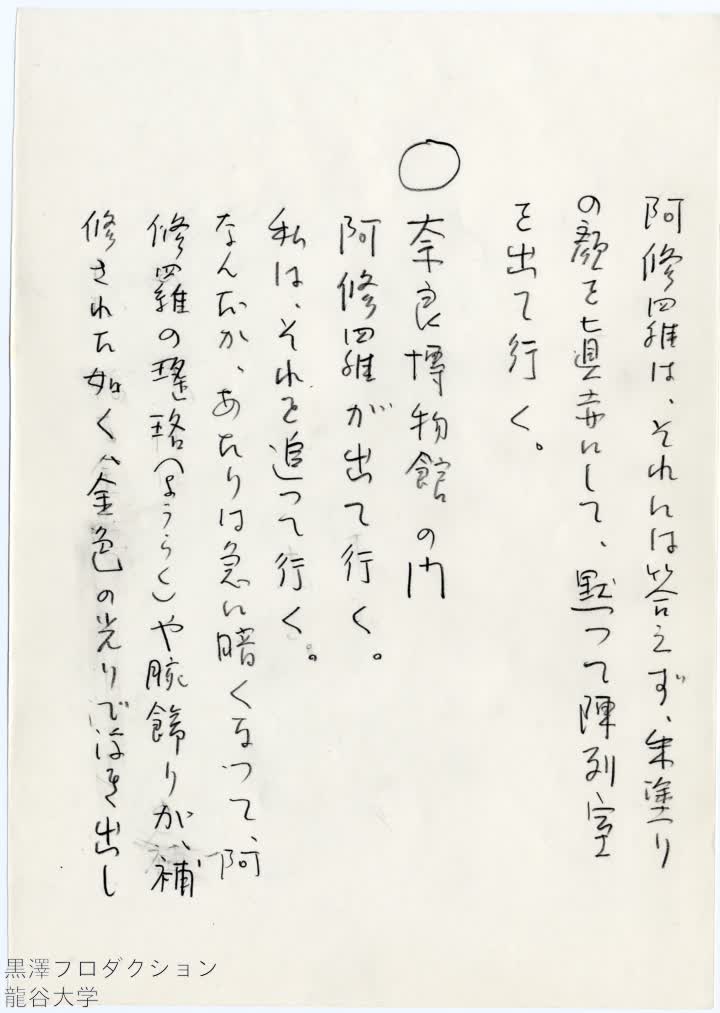 阿修羅は、それには答えず、朱塗り
の顔を真赤にして、黙つて陳列室
を出て行く。
○
奈良博物館の門
阿修羅が出て行く。
私は、それを追つて行く。
なんだか、あたりは急に暗くなつて、阿
修羅の瓔珞(ようらく)や腕飾りが、補
修された如く、金色の光りで浮き出し
黒澤プロダクション
龍谷大学